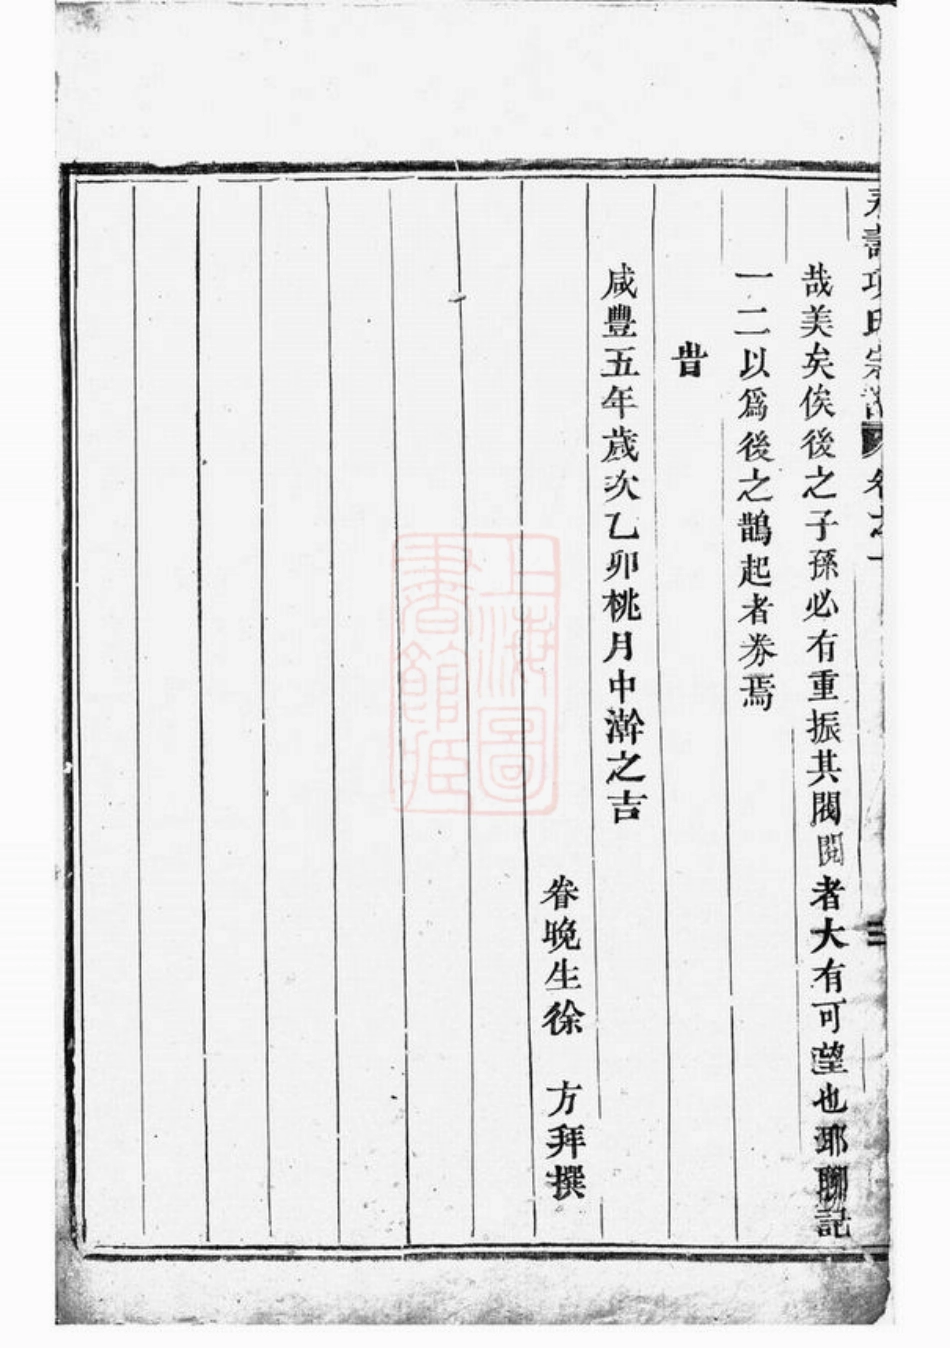 永壽項氏宗譜 卷之一 三
哉美矣俟後之子孫必有重振其閥閱者大有可望也耶聊記
一二以爲後之鵲起者券焉
旹
咸豐五年歲次乙卯桃月中澣之吉
眷晚生徐　方拜撰
上海圖
書館藏